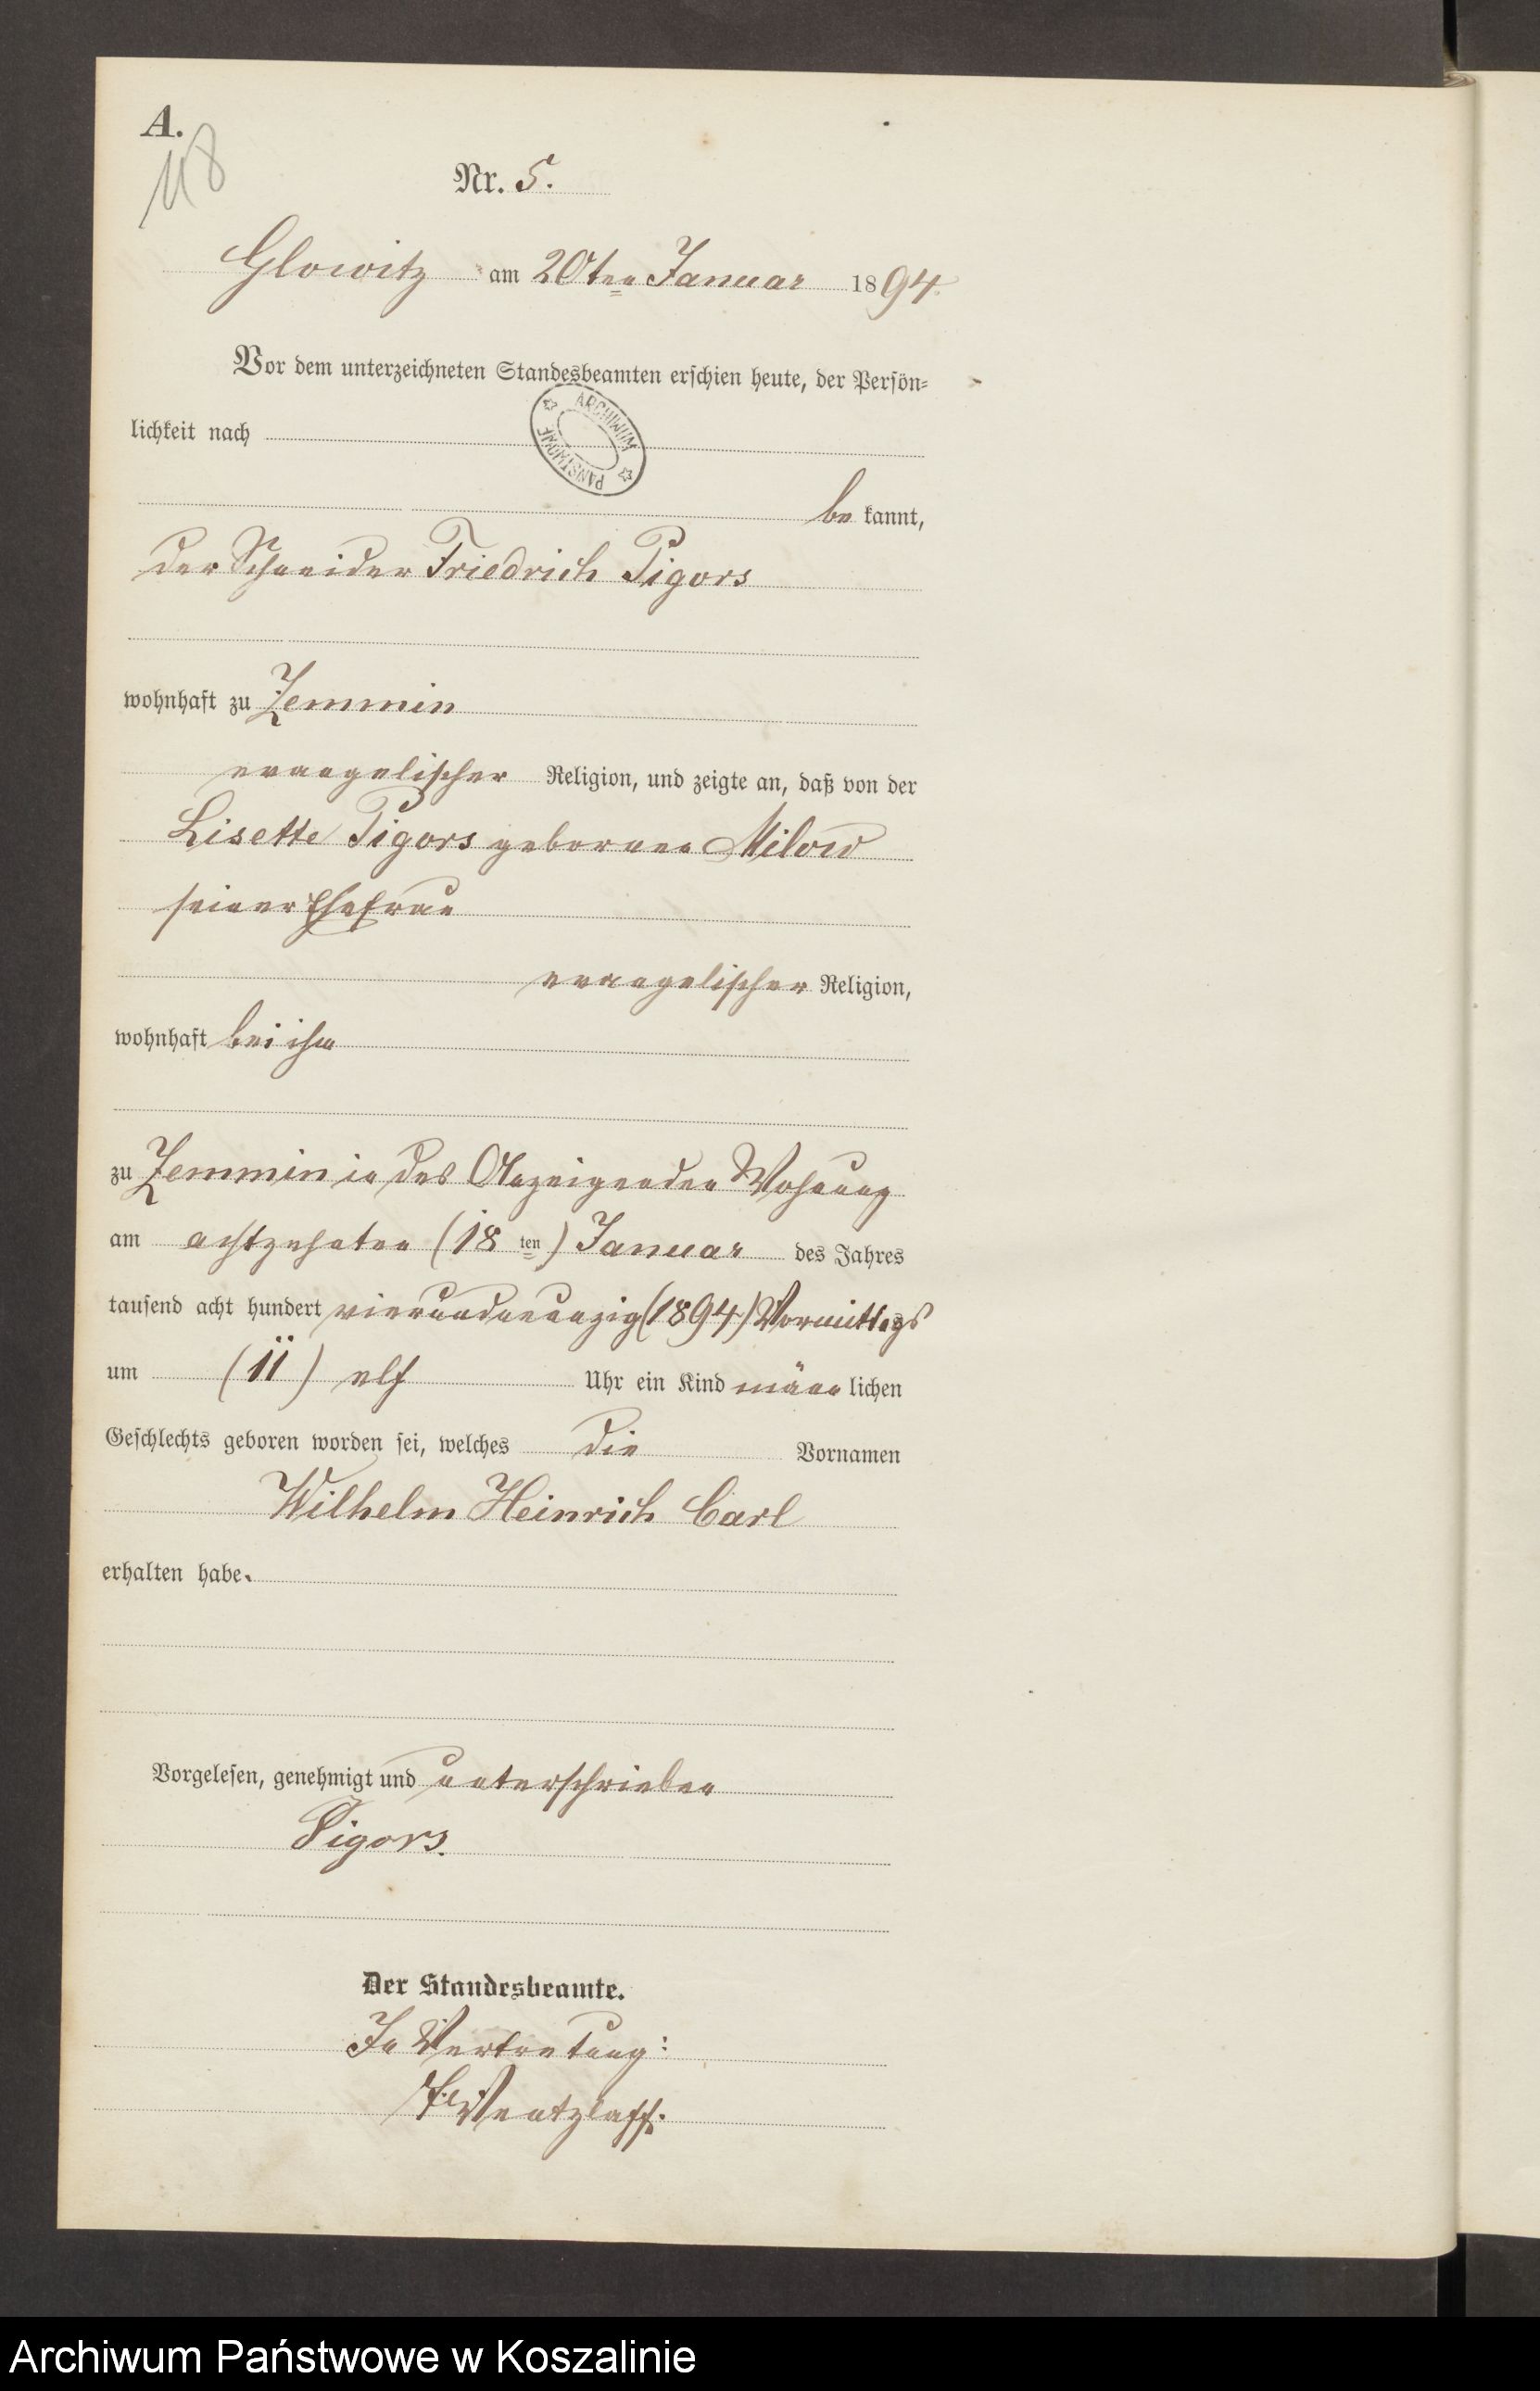 A.
118
Nr. 5.
Glowitz am 20ten Januar 1894.
Vor dem unterzeichneten Standesbeamten erschien heute, der Persön-
lichkeit nach
ARCHIWUM PAŃSTWOWE
be kannt,
der Schneider Friedrich Pigors
wohnhaft zu Zemmin
evangelischer Religion, und zeigte an, daß von der
Lisette Pigors geborenen Milow
seiner Ehefrau
evangelischer Religion,
wohnhaft bei ihm
zu Zemmin in des Anzeigenden Wohnung
am achtzehnten (18ten) Januar des Jahres
tausend acht hundert vierundneunzig (1894) Vormittags
um (11) elf Uhr ein Kind männlichen
Geschlechts geboren worden sei, welches die Vornamen
Wilhelm Heinrich Carl
erhalten habe.
Vorgelesen, genehmigt und unterschrieben
Pigors.
Der Standesbeamte.
In Vertretung:
Wentzlaff.
Archiwum Państwowe w Koszalinie